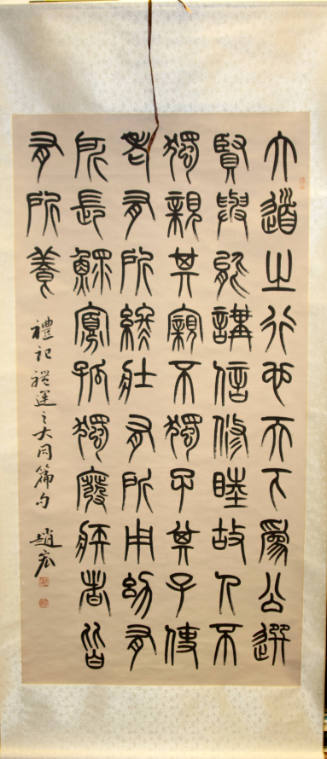 大道之行也天下為公選
賢與能講信修睦故人不
獨親其親不獨子其子使
老有所終壯有所用幼有
所長鰥寡孤獨廢疾者皆
有所養
禮記禮運之大同篇句 趙宏